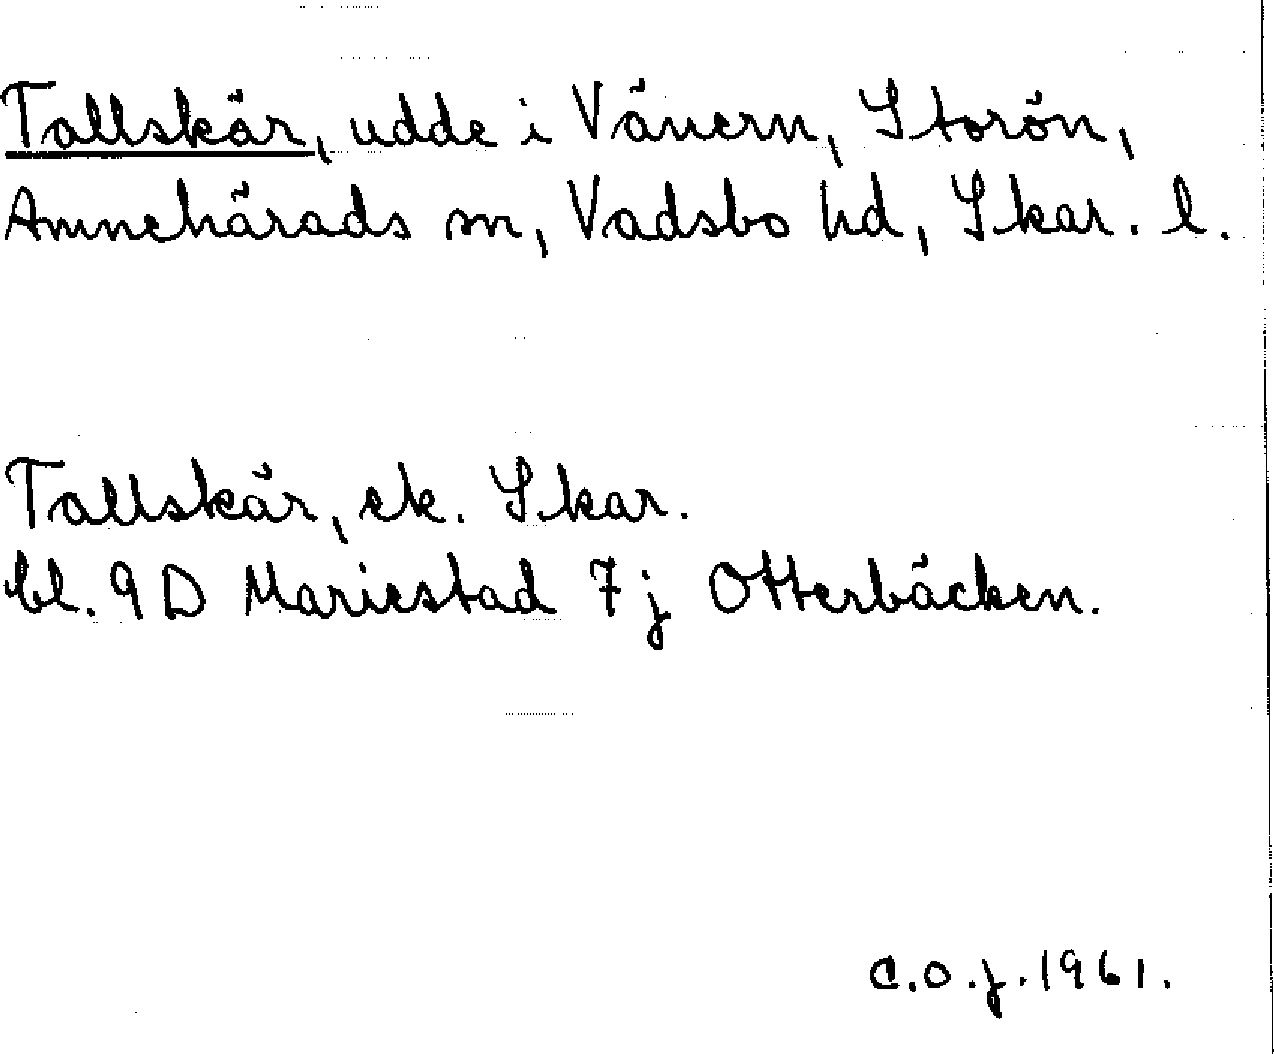 Tallskär, udde i Vänern, Storön,
Amnehärads sn, Vadsbo hd, Skar. l.
Tallskär, ek. Skar.
bl. 9D Mariestad 7j Otterbäcken.
C.O.J. 1961.